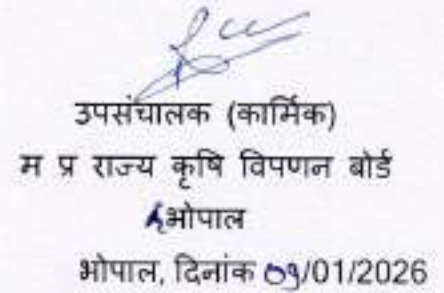 उपसंचालक (कार्मिक)
म प्र राज्य कृषि विपणन बोर्ड
भोपाल
भोपाल, दिनांक 09/01/2026